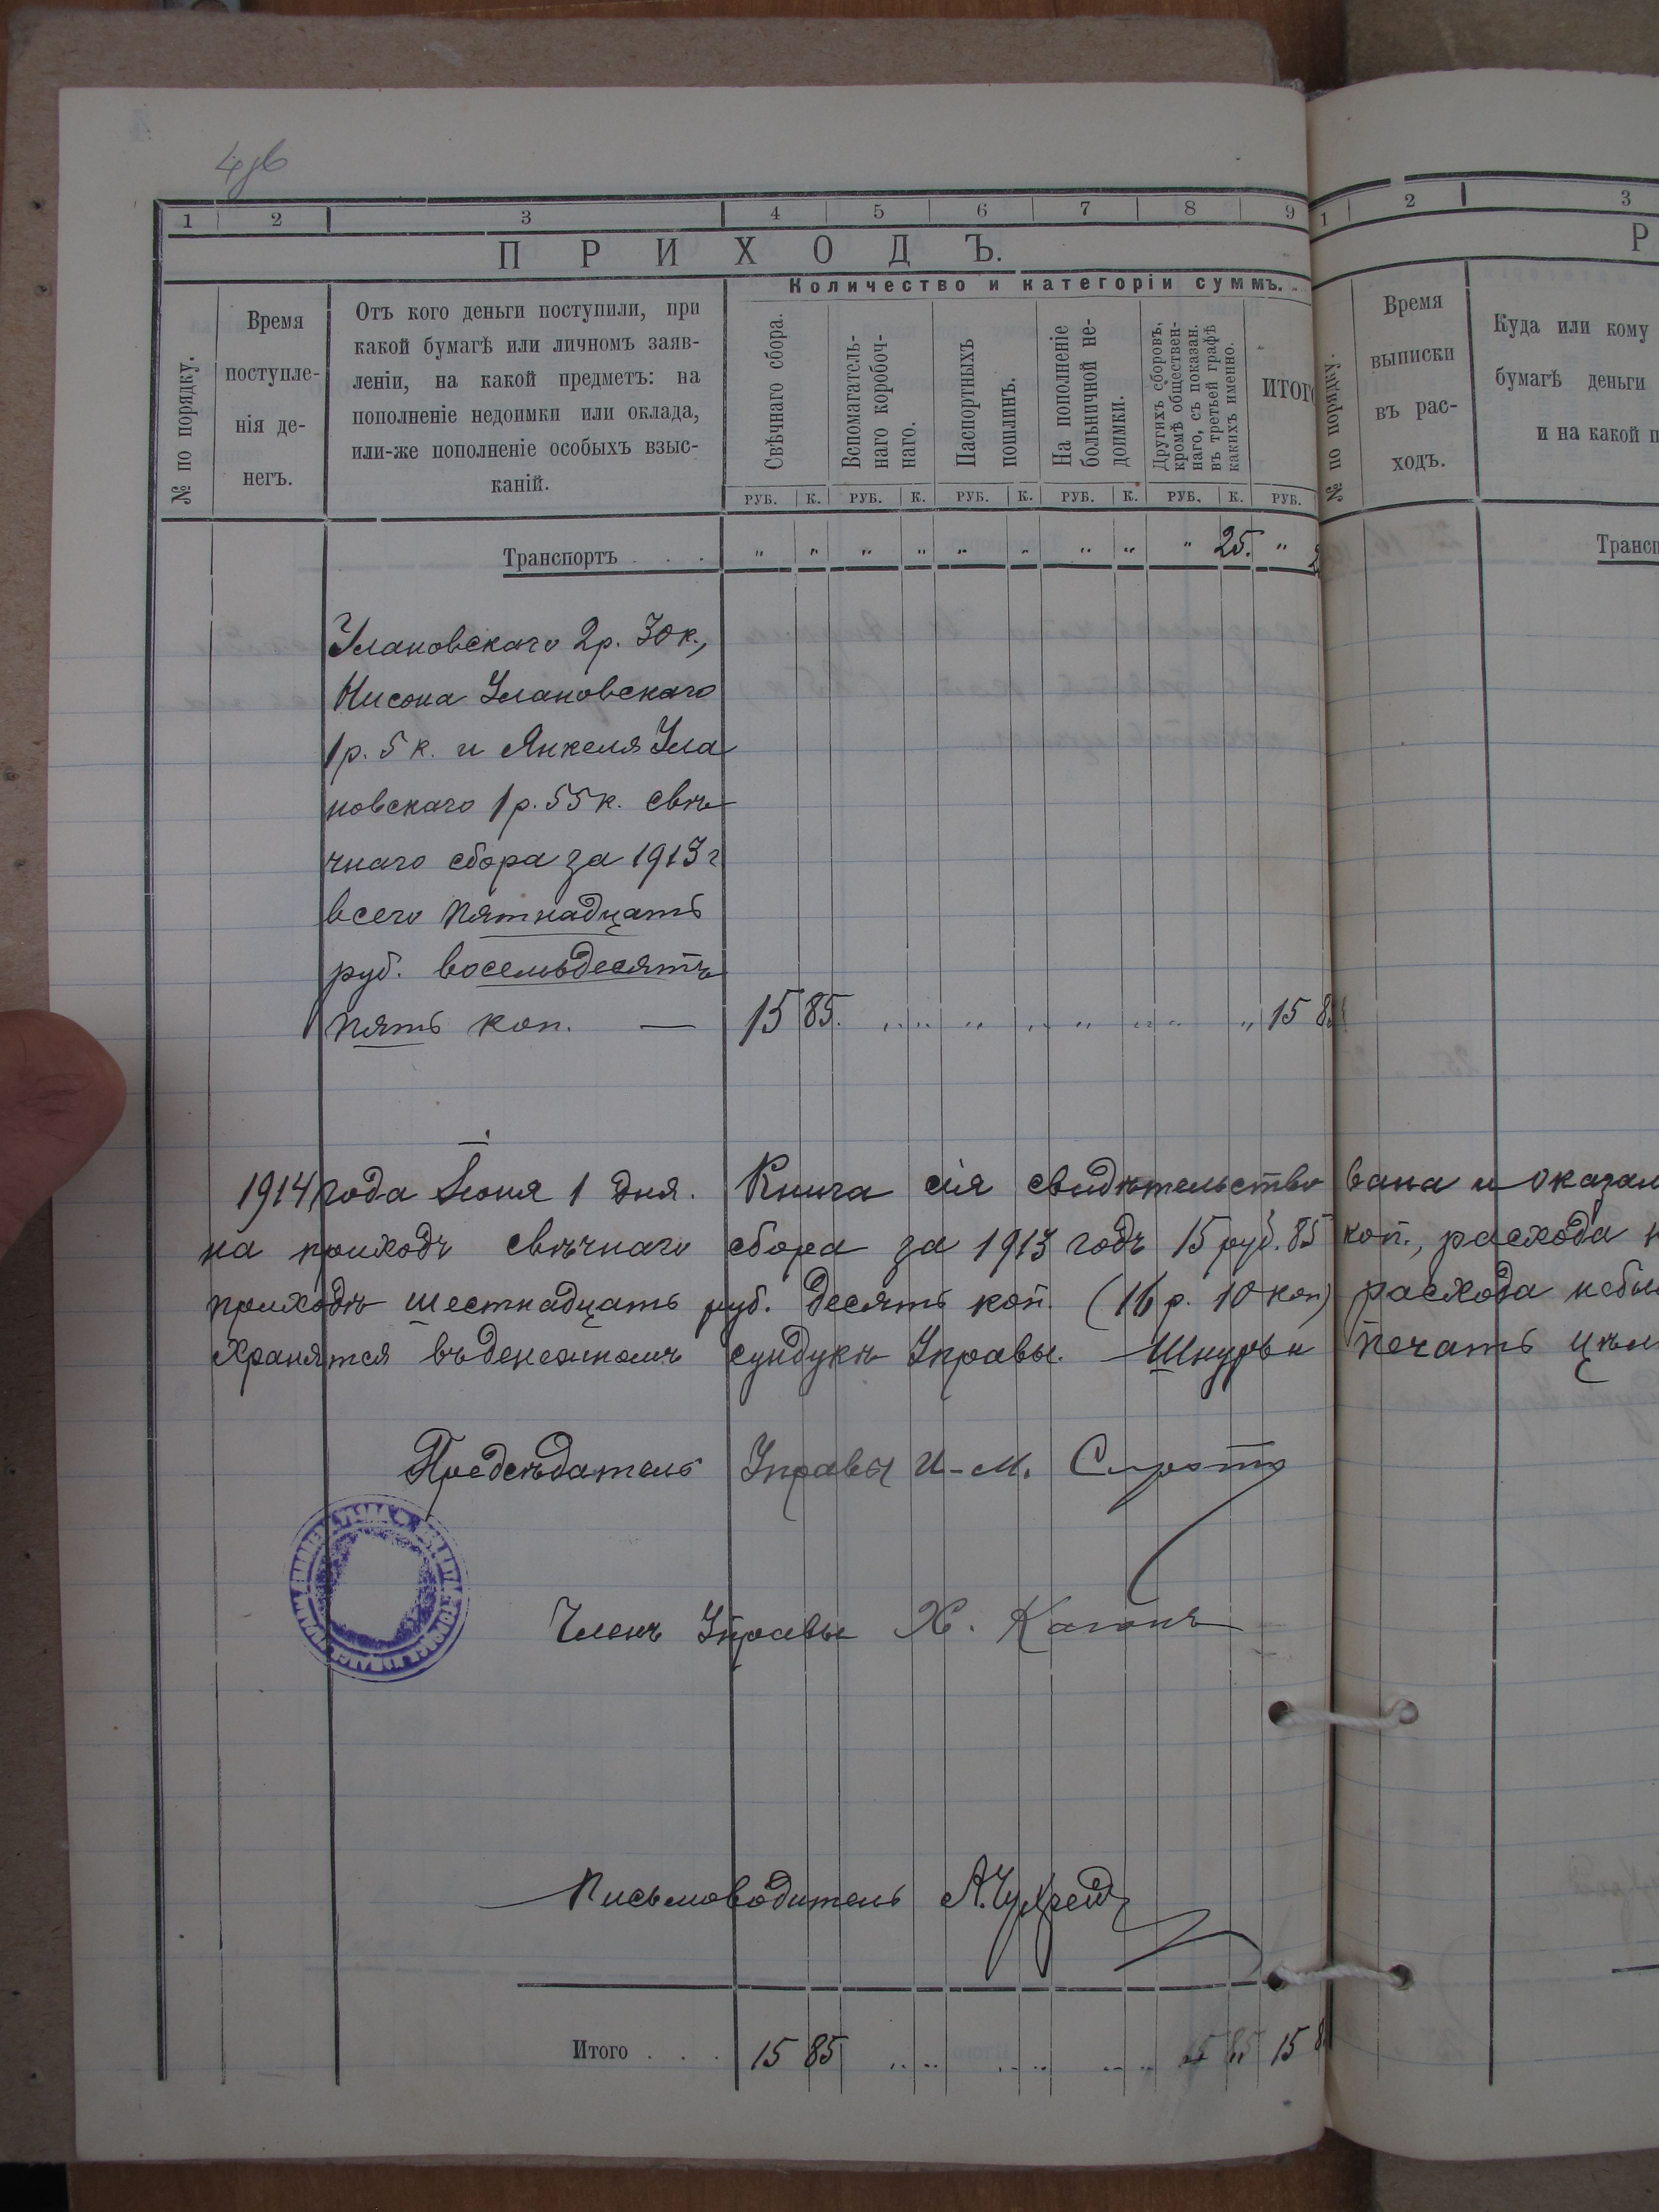 4об
1 2 3 4 5 6 7 8 9 1 2 3
ПРИХОДЪ. Р
Количество и категоріи суммъ.
№ по порядку.
Время
поступле-
нія де-
негъ.
Отъ кого деньги поступили, при
какой бумагѣ или личномъ заяв-
леніи, на какой предметъ: на
пополненіе недоимки или оклада,
или-же пополненіе особыхъ взыс-
каній.
Свѣчнаго сбора.
Вспомагатель-
наго коробоч-
наго.
Паспортныхъ
пошлинъ.
На пополненіе
больничной не-
доимки.
Другихъ сборовъ,
кромѣ обществен-
наго, съ показан.
въ третьей графѣ
какихъ именно.
ИТОГО
РУБ. К. РУБ. К. РУБ. К. РУБ. К. РУБ. К. РУБ.
№ по порядку.
Время
выписки
въ рас-
ходъ.
Куда или кому
бумагѣ деньги
и на какой п
Транспортъ . . . " " " " " " " " " 25. " 2
Трансп
Улановскаго 2р. 30к.,
Нисона Улановскаго
1р. 5к. и Янкеля Ула
новскаго 1р. 55к. свѣ-
чнаго сбора за 1913г
всего пятнадцать
руб. восемьдесятъ
пять коп. — 15 85. " " " " " " " " 15 85
1914 года Іюня 1 дня. Книга сія свидѣтельствована и оказал
на приходѣ свѣчнаго сбора за 1913 годъ 15 руб. 85 коп., расхода н
приходѣ шестнадцать руб. десять коп. (16 р. 10 коп) расхода небыл
хранятся въ денежномъ сундукѣ Управы. Шнуръ и печать цѣл
Предсѣдатель Управы И-М. Сирота
Членъ Управы Х. Каганъ
Письмоводитель
Итого . . . 15 85 " " " " " " 15 8